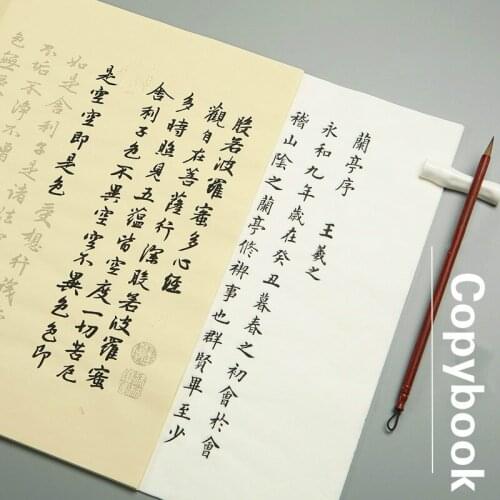 蘭亭序 王羲之
永和九年歲在癸丑暮春之初會於會
稽山陰之蘭亭修禊事也群賢畢至少
般若波羅蜜多心經
觀自在菩薩行深般若波羅蜜
多時照見五蘊皆空度一切苦厄
舍利子色不異空空不異色色即
是空空即是色受想行識
如是舍利子是諸法
不垢不淨不增
色無
Copybook